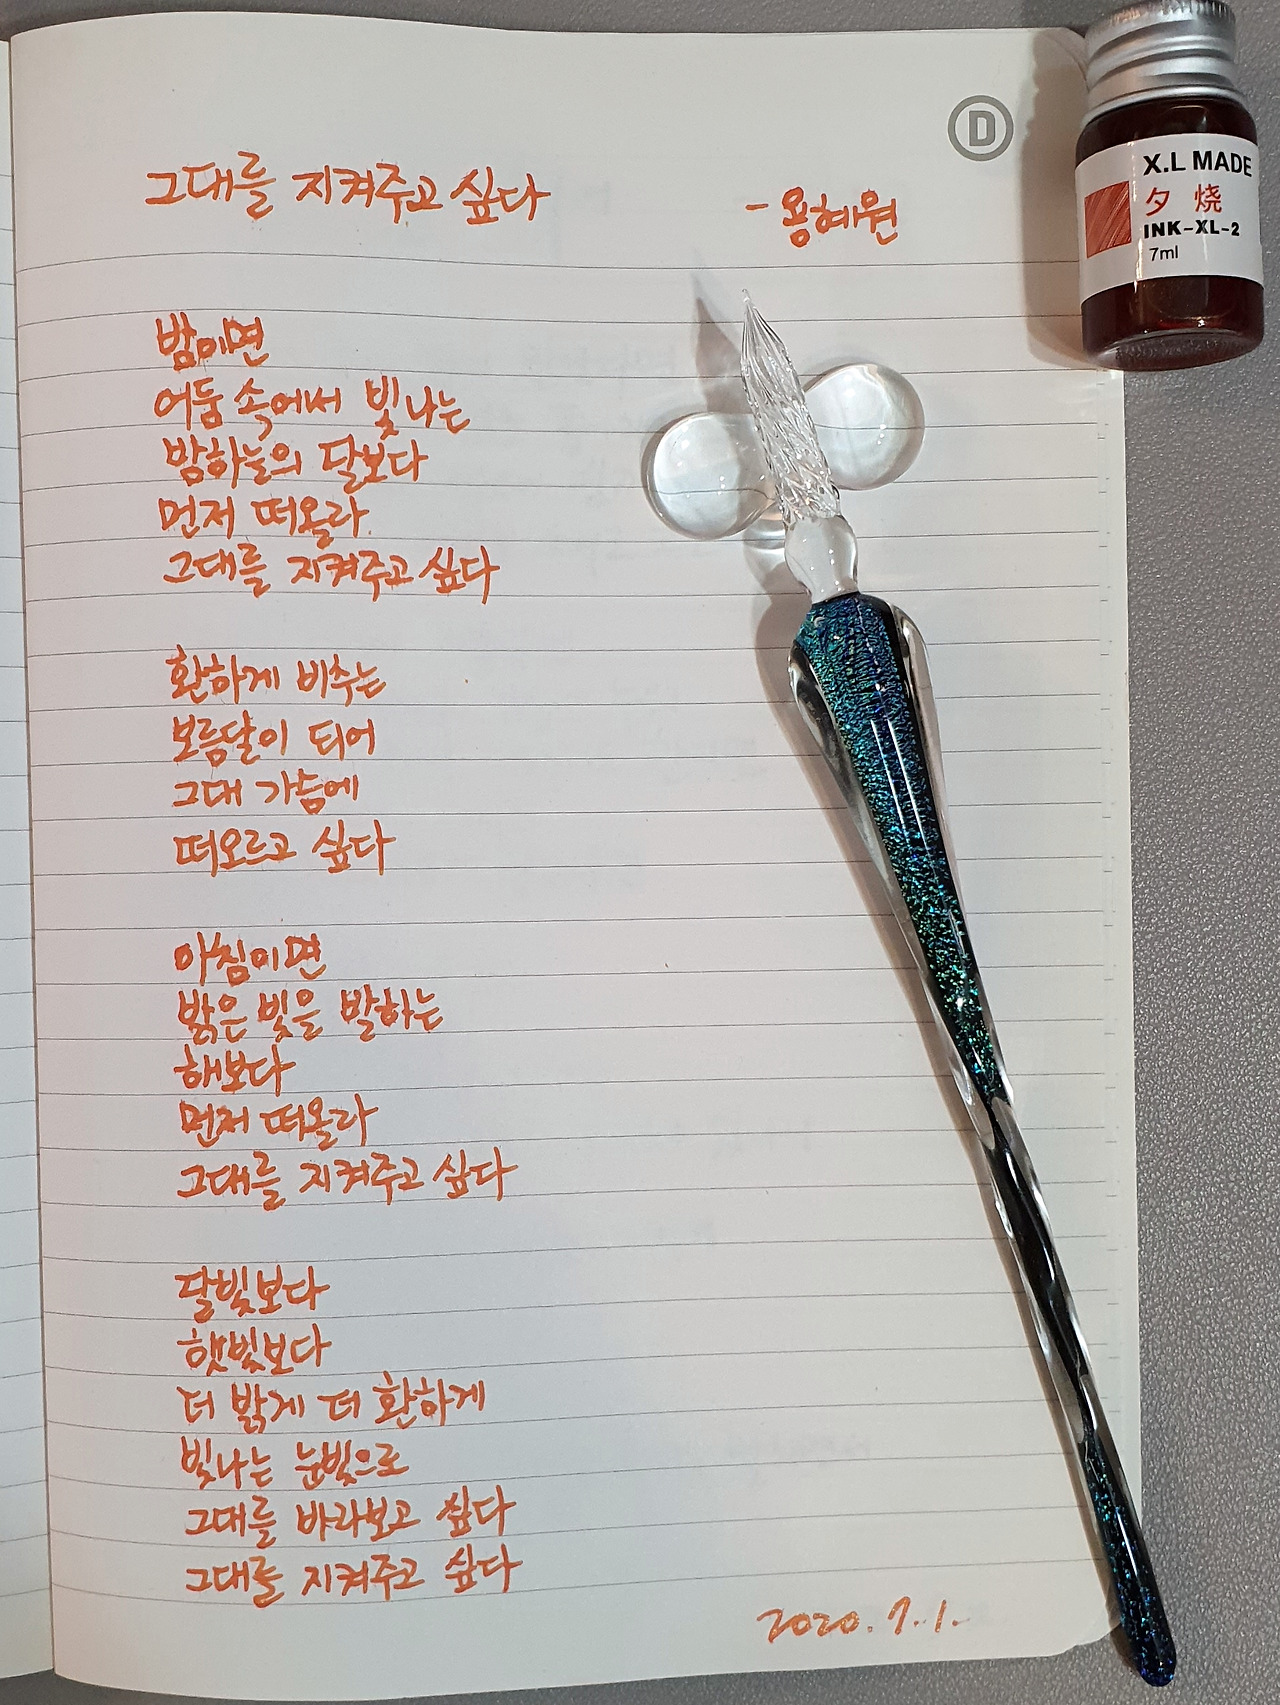 D
X.L MADE
夕 烧
INK-XL-2
7ml
그대를 지켜주고 싶다
- 용혜원
밤이면
어둠 속에서 빛나는
밤하늘의 달보다
먼저 떠올라
그대를 지켜주고 싶다
환하게 비추는
보름달이 되어
그대 가슴에
떠오르고 싶다
아침이면
밝은 빛을 발하는
해보다
먼저 떠올라
그대를 지켜주고 싶다
달빛보다
햇빛보다
더 밝게 더 환하게
빛나는 눈빛으로
그대를 바라보고 싶다
그대를 지켜주고 싶다
2020. 7. 1.